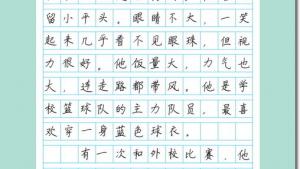 留小平头。眼睛不大，一笑
起来几乎看不见眼珠，但视
力很好。他饭量大，力气也
大，连走路都带风。他是学
校篮球队的主力队员，最喜
欢穿一身蓝色球衣。
有一次和外校比赛，他